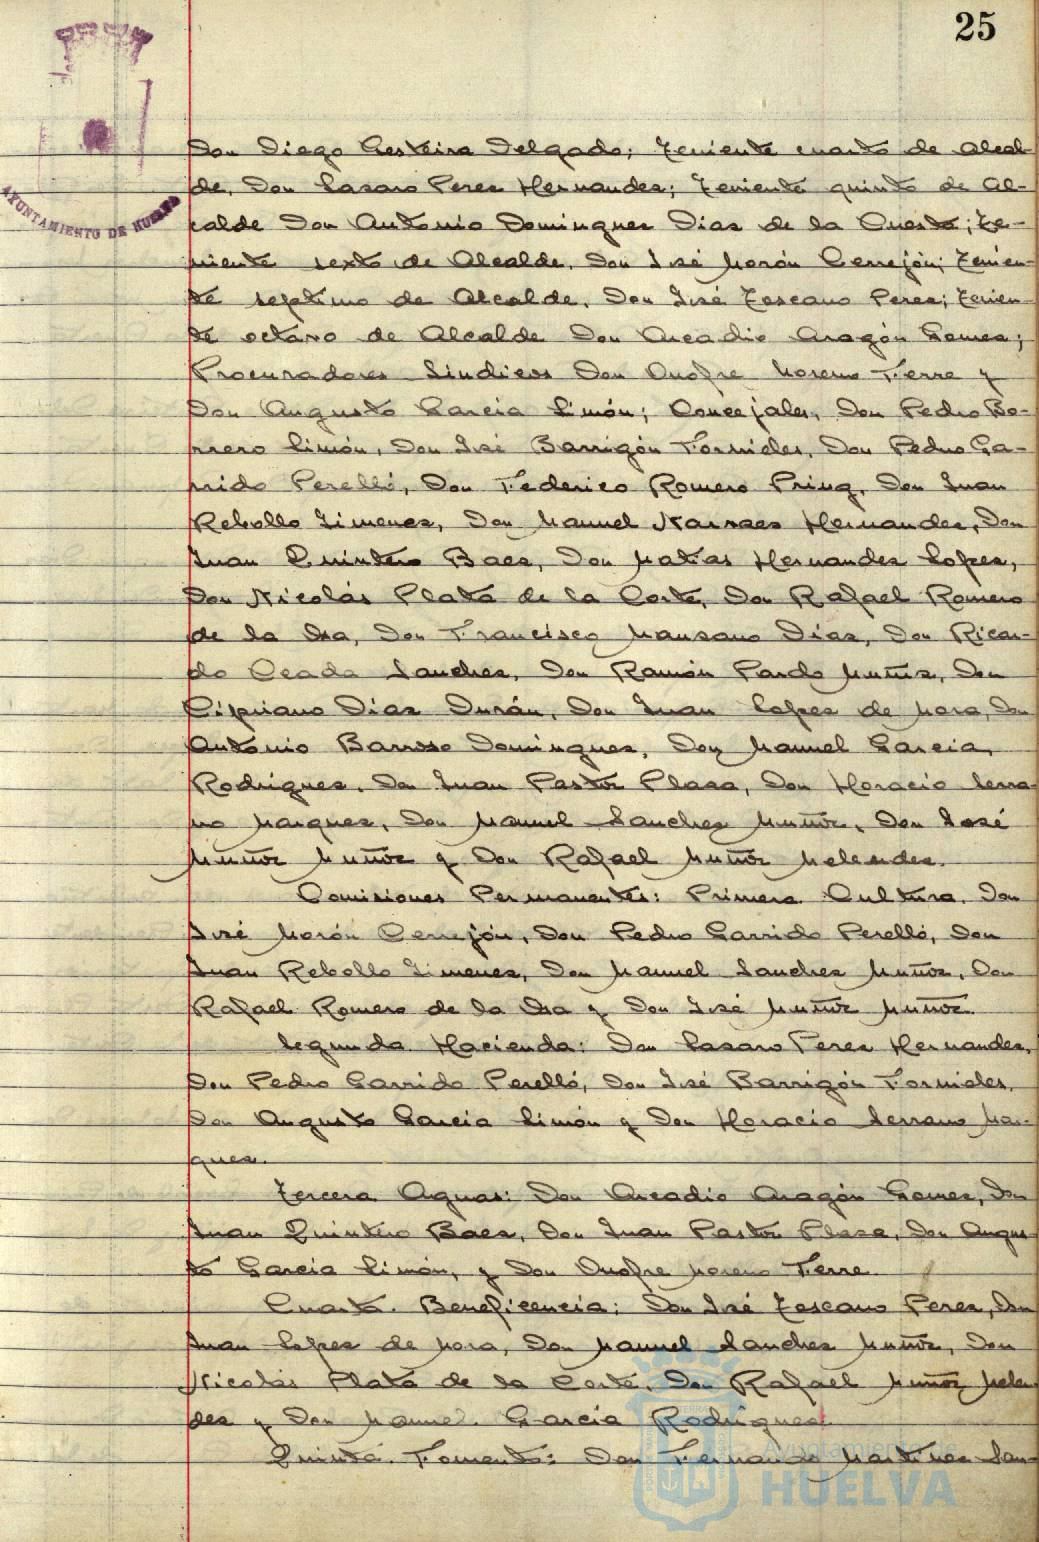 25
AYUNTAMIENTO DE HUELVA
Don Diego Gesteira Delgado; Teniente cuarto de Alcal-
de, Don Lazaro Perez Hernandez; Teniente quinto de Al-
calde Don Antonio Dominguez Diaz de la Cuesta; Te-
niente sexto de Alcalde, Don José Morón Cerrejón; Tenien-
te septimo de Alcalde, Don José Toscano Perez; Tenien-
te octavo de Alcalde Don Arcadio Aragón Gomez;
Procuradores Sindicos Don Onofre Moreno Ferre y
Don Augusto Garcia Limón; Concejales, Don Pedro Bo-
rrero Limón, Don José Barrigón Fornieles, Don Pedro Ga-
rrido Perelló, Don Federico Romero Prinq, Don Juan
Rebollo Jimenez, Don Manuel Narvaez Hernandez, Don
Juan Quintero Baez, Don Matias Hernandez Lopez,
Don Nicolás Plata de la Corte, Don Rafael Romero
de la Osa, Don Francisco Manzano Diaz, Don Ricar-
do Ceada Sanchez, Don Ramón Pardo Muñiz, Don
Cipriano Diaz Durán, Don Juan Lopez de Mora, Don
Antonio Barroso Dominguez, Don Manuel Garcia
Rodriguez, Don Juan Pastor Plaza, Don Horacio Serra-
no Marquez, Don Manuel Sanchez Muñoz, Don José
Muñoz Muñoz y Don Rafael Muñoz Melendez.
Comisiones Permanentes: Primera Cultura, Don
José Morón Cerrejón, Don Pedro Garrido Perelló, Don
Juan Rebollo Jimenez, Don Manuel Sanchez Muñoz, Don
Rafael Romero de la Osa y Don José Muñoz Muñoz
Segunda Hacienda: Don Lazaro Perez Hernandez,
Don Pedro Garrido Perelló, Don José Barrigón Fornieles,
Don Augusto Garcia Limón y Don Horacio Serrano Mar-
quez.
Tercera Aguas: Don Arcadio Aragón Gomez, Don
Juan Quintero Baez, Don Juan Pastor Plaza, Don Augus-
to Garcia Limón, y Don Onofre Moreno Ferre
Cuarta. Beneficencia; Don José Toscano Perez, Don
Juan Lopez de Mora, Don Manuel Sanchez Muñoz, Don
Nicolás Plata de la Corte, Don Rafael Muñoz Melen-
dez y Don Manuel Garcia Rodriguez
Quinta. Fomento: Don Fernando Martinez San-
Ayuntamiento de
HUELVA